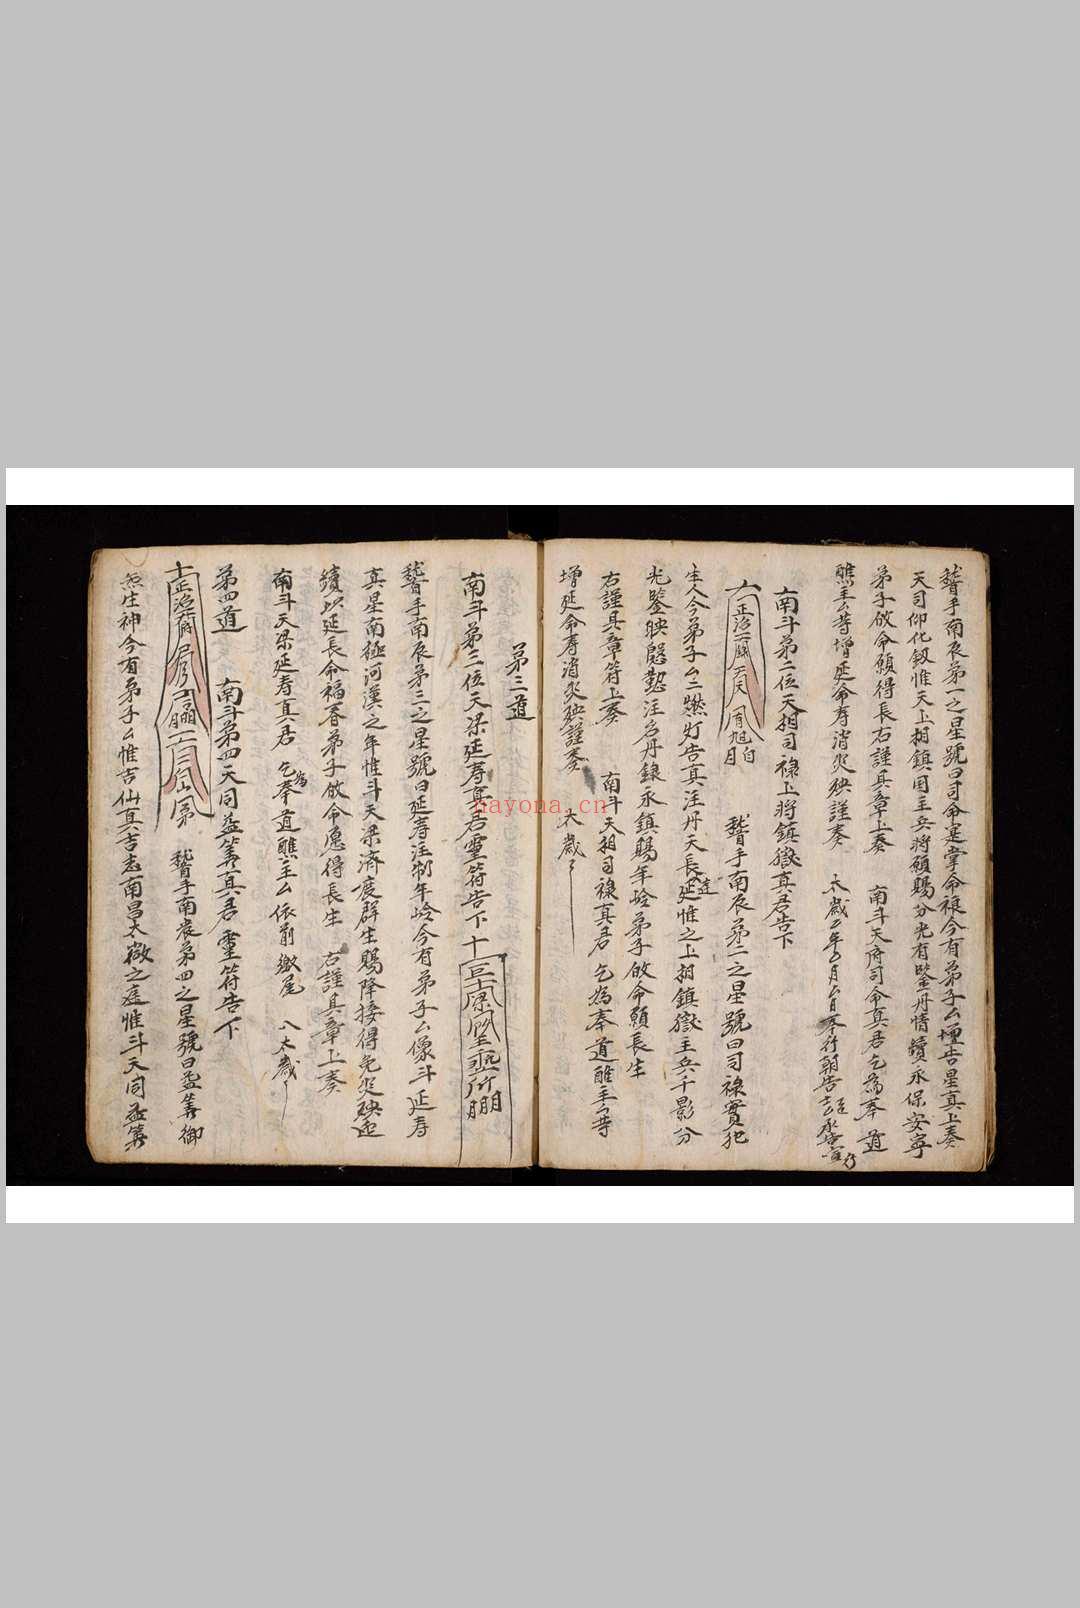 稽首南辰第一之星號曰司命寔掌命禄今有弟子厶壇告星真上奏
天司仰化錫惟天上相鎮国主兵將願賜分光有鑒丹情讀永保安寧
弟子攸命願得長右謹具章上奏 南斗天府司命真君乞為奉道
醮主厶等增延命壽消災殃謹奏 太歲厶年厶月厶日奉行
南斗第二位天相司禄上將鎮嶽真君告下
稽首南辰第二之星號曰司禄實犯
生人今弟子厶二燃灯告真注丹天長延惟之上相鎮嶽主兵千影分
光鑒映慇懃注名丹錄永鎮賜年岭弟子攸命願長生
右謹具章符上奏 南斗天相司禄真君乞為奉道醮主厶等
增延命壽消災殃謹奏 太歲
第三道
南斗第三位天梁延寿真君靈符告下
稽首南辰第三之星號曰延寿注制年岭今有弟子厶像斗延寿
真星南極河漢之年惟斗天梁濟度群生賜降接得免災殃延
續以延長命福春弟子攸命愿得長生 右謹具章上奏
南斗天梁延寿真君 乞為奉道醮主厶依前繳尾 太歲
第四道 南斗第四天同益筭真君靈符告下
稽首南辰第四之星號曰益筭御
炁生神今有弟子厶惟吉仙真吉志南昌太微之庭惟斗天同益筭
nayona.cn